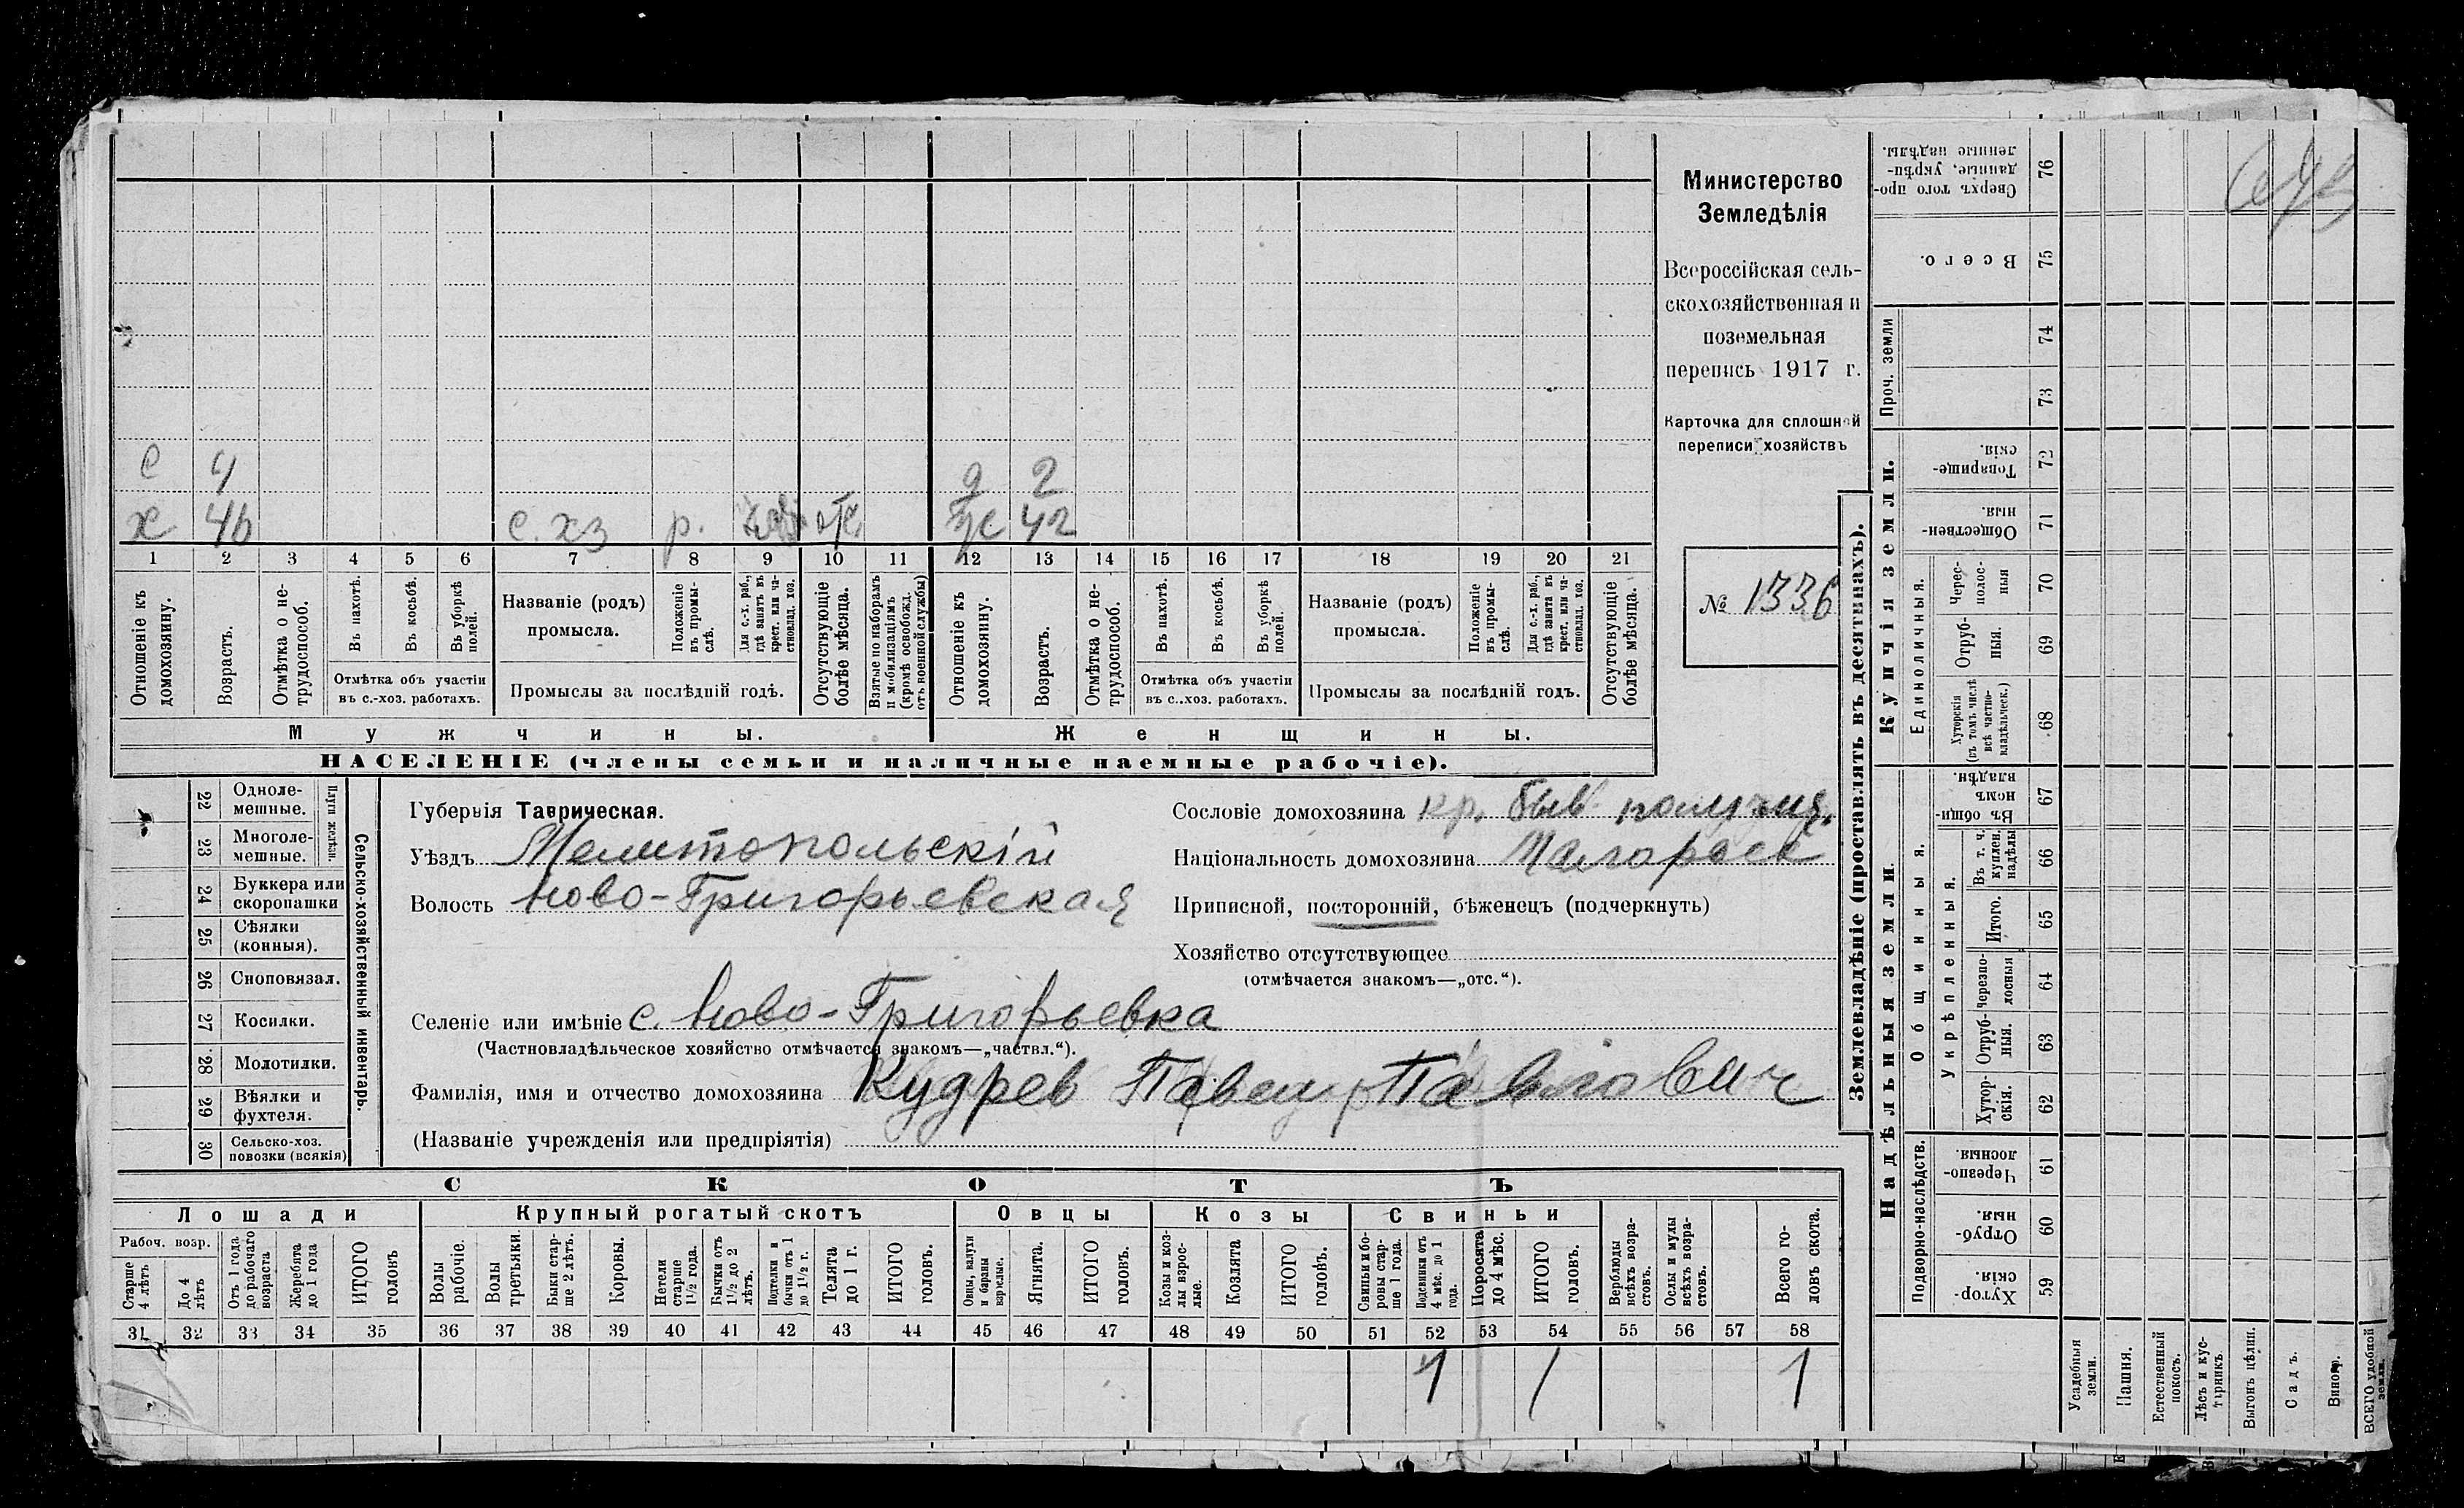 Министерство
Земледѣлія
Всероссійская сель-
скохозяйственная и
поземельная
перепись 1917 г.
Карточка для сплошной
переписи хозяйствъ
№ 1336
с 4 д 2
х 46 с. хз р. 42
1 2 3 4 5 6 7 8 9 10 11 12 13 14 15 16 17 18 19 20 21
Отношеніе къ домохозяину.
Возрастъ.
Отмѣтка о не-трудоспособ.
Въ пахотѣ.
Въ косьбѣ.
Въ уборкѣ полей.
Отмѣтка объ участіи
въ с.-хоз. работахъ.
Названіе (родъ)
промысла.
Положеніе въ промы-слѣ.
Для с.-х. раб., гдѣ занятъ въ крест. или ча-стновлад. хоз.
Промыслы за послѣдній годъ.
Отсутствующіе болѣе мѣсяца.
Взятые по наборамъ и мобилизаціямъ (кромѣ освобожд. отъ военной службы)
Отношеніе къ домохозяину.
Возрастъ.
Отмѣтка о не-трудоспособ.
Въ пахотѣ.
Въ косьбѣ.
Въ уборкѣ полей.
Отмѣтка объ участіи
въ с..хоз. работахъ.
Названіе (родъ)
промысла.
Положеніе въ промы-слѣ.
Для с.-х. раб., гдѣ занята въ крест. или ча-стновлад. хоз.
Промыслы за послѣдній годъ.
Отсутствующіе болѣе мѣсяца.
Мужчины. Женщины.
НАСЕЛЕНІЕ (члены семьи и наличные наемные рабочіе).
22 Одноле-мешные.
23 Многоле-мешные.
Плуги желѣзн.
24 Буккера или скоропашки
25 Сѣялки (конныя).
26 Сноповязал.
27 Косилки.
28 Молотилки.
29 Вѣялки и фухтеля.
30 Сельско-хоз. повозки (всякія)
Сельско-хозяйственный инвентарь.
Губернія Таврическая.
Уѣздъ Мелитопольскій
Волость Ново-Григорьевская
Сословіе домохозяина кр. быв.
Національность домохозяина Малоросс
Приписной, посторонній, бѣженецъ (подчеркнуть)
Хозяйство отсутствующее
(отмѣчается знакомъ—„отс.“).
Селеніе или имѣніе с. Ново-Григорьевка
(Частновладѣльческое хозяйство отмѣчается знакомъ—„частвл.“).
Фамилія, имя и отчество домохозяина Кудрев Павел Павлович
(Названіе учрежденія или предпріятія)
СКОТЪ
Лошади Крупный рогатый скотъ Овцы Козы Свиньи
Рабоч. возр.
Старше 4 лѣтъ
До 4 лѣтъ
Отъ 1 года до рабочаго возраста
Жеребята до 1 года
ИТОГО головъ
Волы рабочіе.
Волы третьяки.
Быки стар-ше 2 лѣтъ.
Коровы.
Нетели старше 1½ года.
Бычки отъ 1½ до 2 лѣтъ.
Подтелки и бычки отъ 1 до 1½ г.
Телята до 1 г.
ИТОГО головъ.
Овцы, валухи и бараны взрослые.
Ягнята.
ИТОГО головъ.
Козы и коз-лы взрос-лые.
Козлята
ИТОГО головъ.
Свиньи и бо-ровы стар-ше 1 года.
Подсвинки отъ 4 мѣс. до 1 года.
Поросята до 4 мѣс.
ИТОГО головъ.
Верблюды всѣхъ возра-стовъ.
Ослы и мулы всѣхъ возра-стовъ.
Всего го-ловъ скота.
31 32 33 34 35 36 37 38 39 40 41 42 43 44 45 46 47 48 49 50 51 52 53 54 55 56 57 58
1 1 1
Землевладѣніе (проставлять въ десятинахъ).
Надѣльныя земли. Купчія земли.
Подворно-наслѣдств.
Общинныя.
Укрѣпленныя.
Единоличныя.
Проч. земли
76 Сверхъ того про-данные, укрѣп-ленные надѣлы.
75 Всего.
74
73
72 Товарище-скія.
71 Обществен-ныя.
70 Черес-полос-ныя
69 Отруб-ныя.
68 Хуторскія (въ томъ числѣ всѣ частно-владѣльческ.)
67 Въ общин-номъ владѣн.
66 Въ т. ч. куплен. надѣлы
65 Итого.
64 Черезпо-лосныя
63 Отруб-ныя.
62 Хутор-скія.
61 Черезпо-лосныя.
60 Отруб-ныя.
59 Хутор-скія.
Усадебныя земли.
Пашня.
Естественный покосъ.
Лѣсъ и кус-тарникъ.
Выгонъ цѣлин.
Садъ.
Виногр.
ВСЕГО удобной земли.